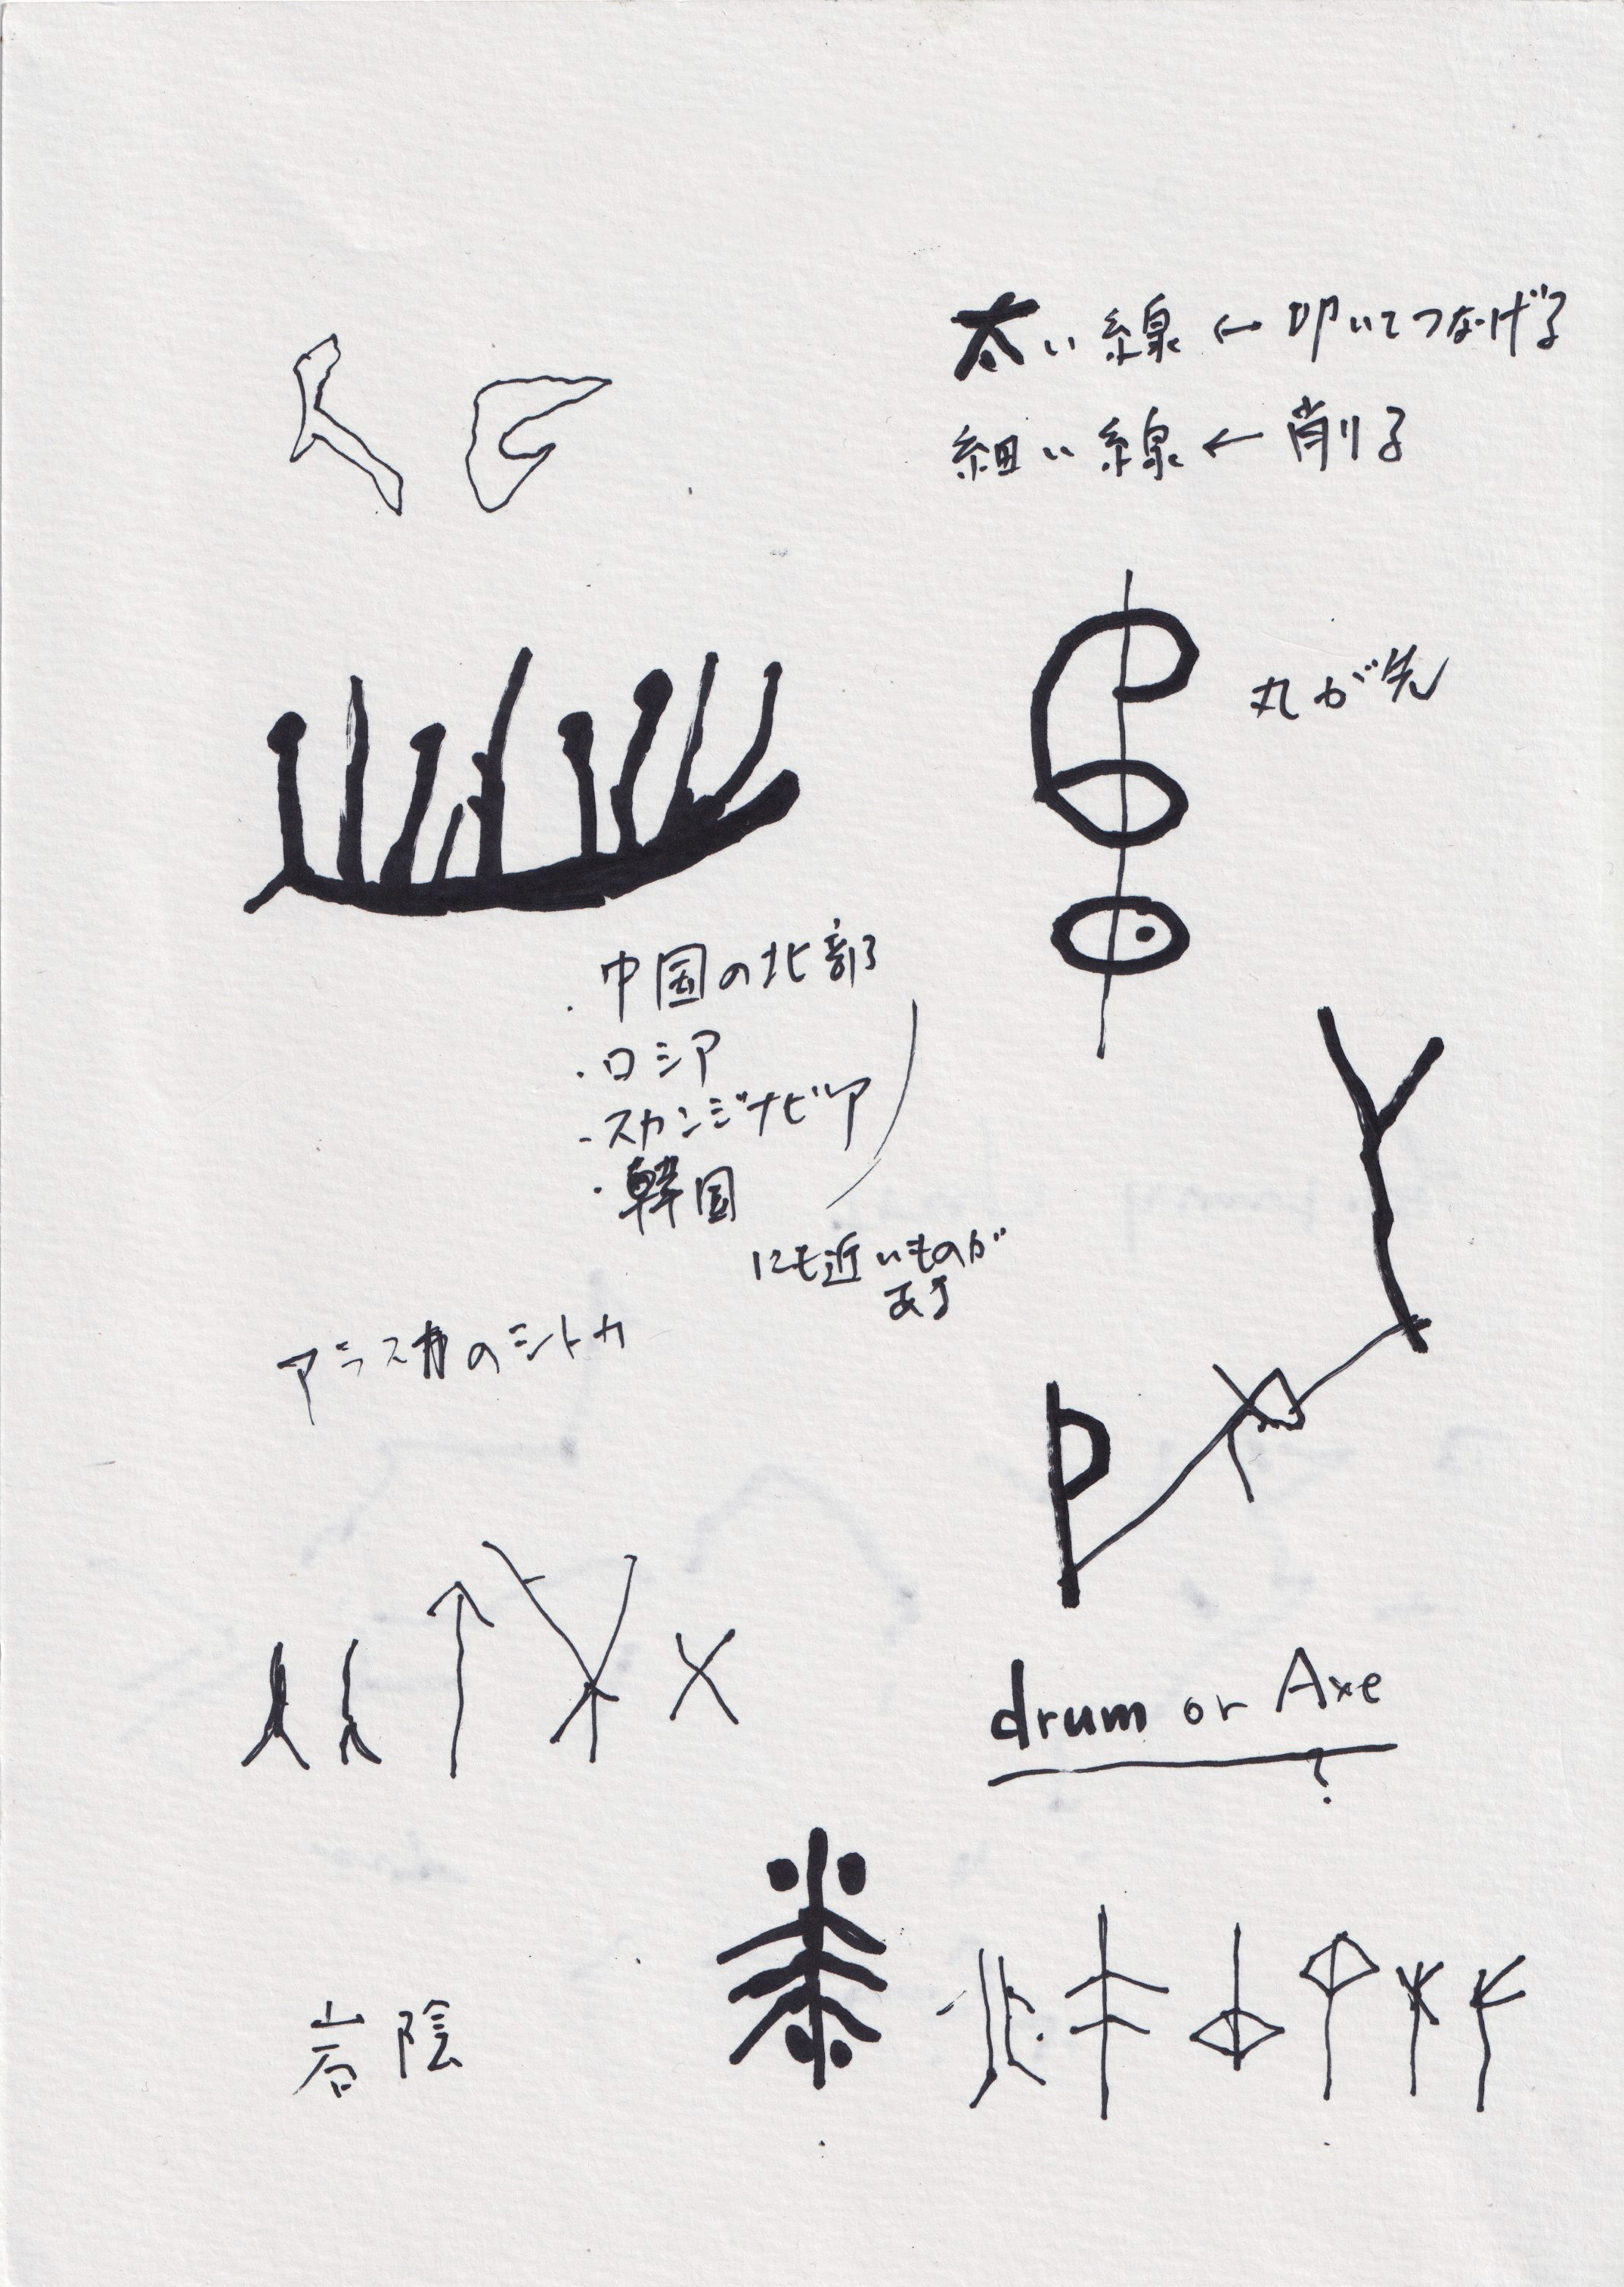 太い線 ← 叩いてつなげる
細い線 ← 削る
丸が先
・中国の北部
・ロシア
・スカンジナビア
・韓国
にも近いものが
ある
アラスカのシトカ
drum or Axe
?
岩陰